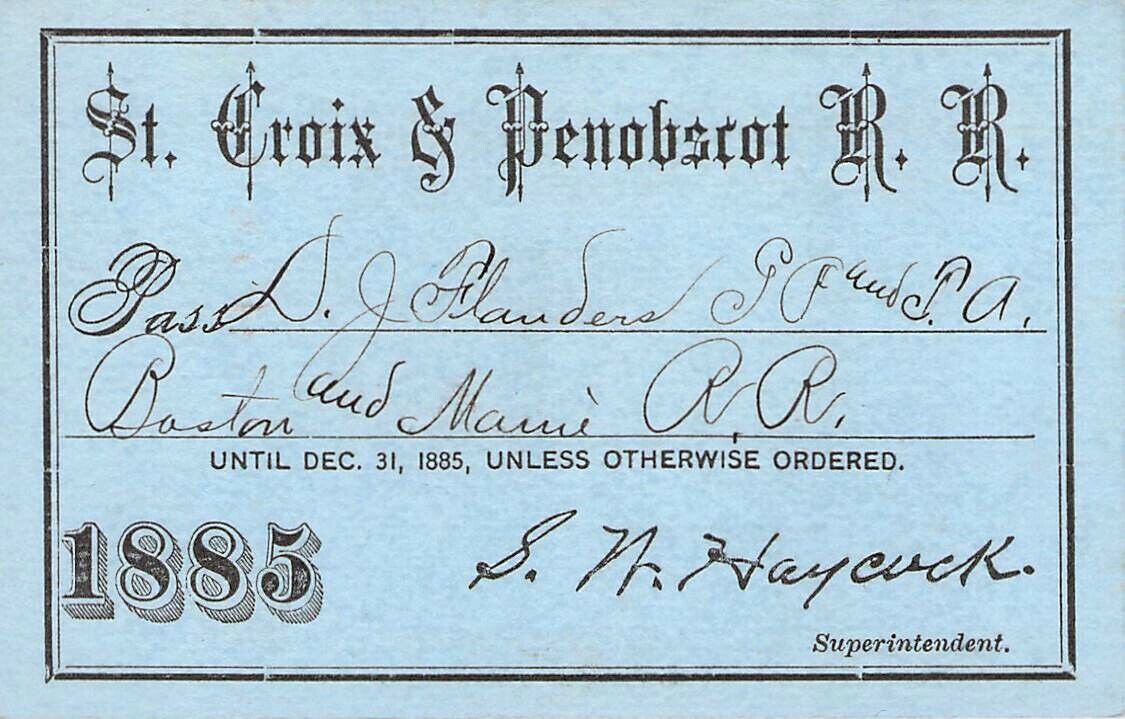 St. Croix & Penobscot R. R.
Pass D. J Flanders G P and T. A.
Boston and Maine R. R.
UNTIL DEC. 31, 1885, UNLESS OTHERWISE ORDERED.
1885
S. W. Haycock.
Superintendent.